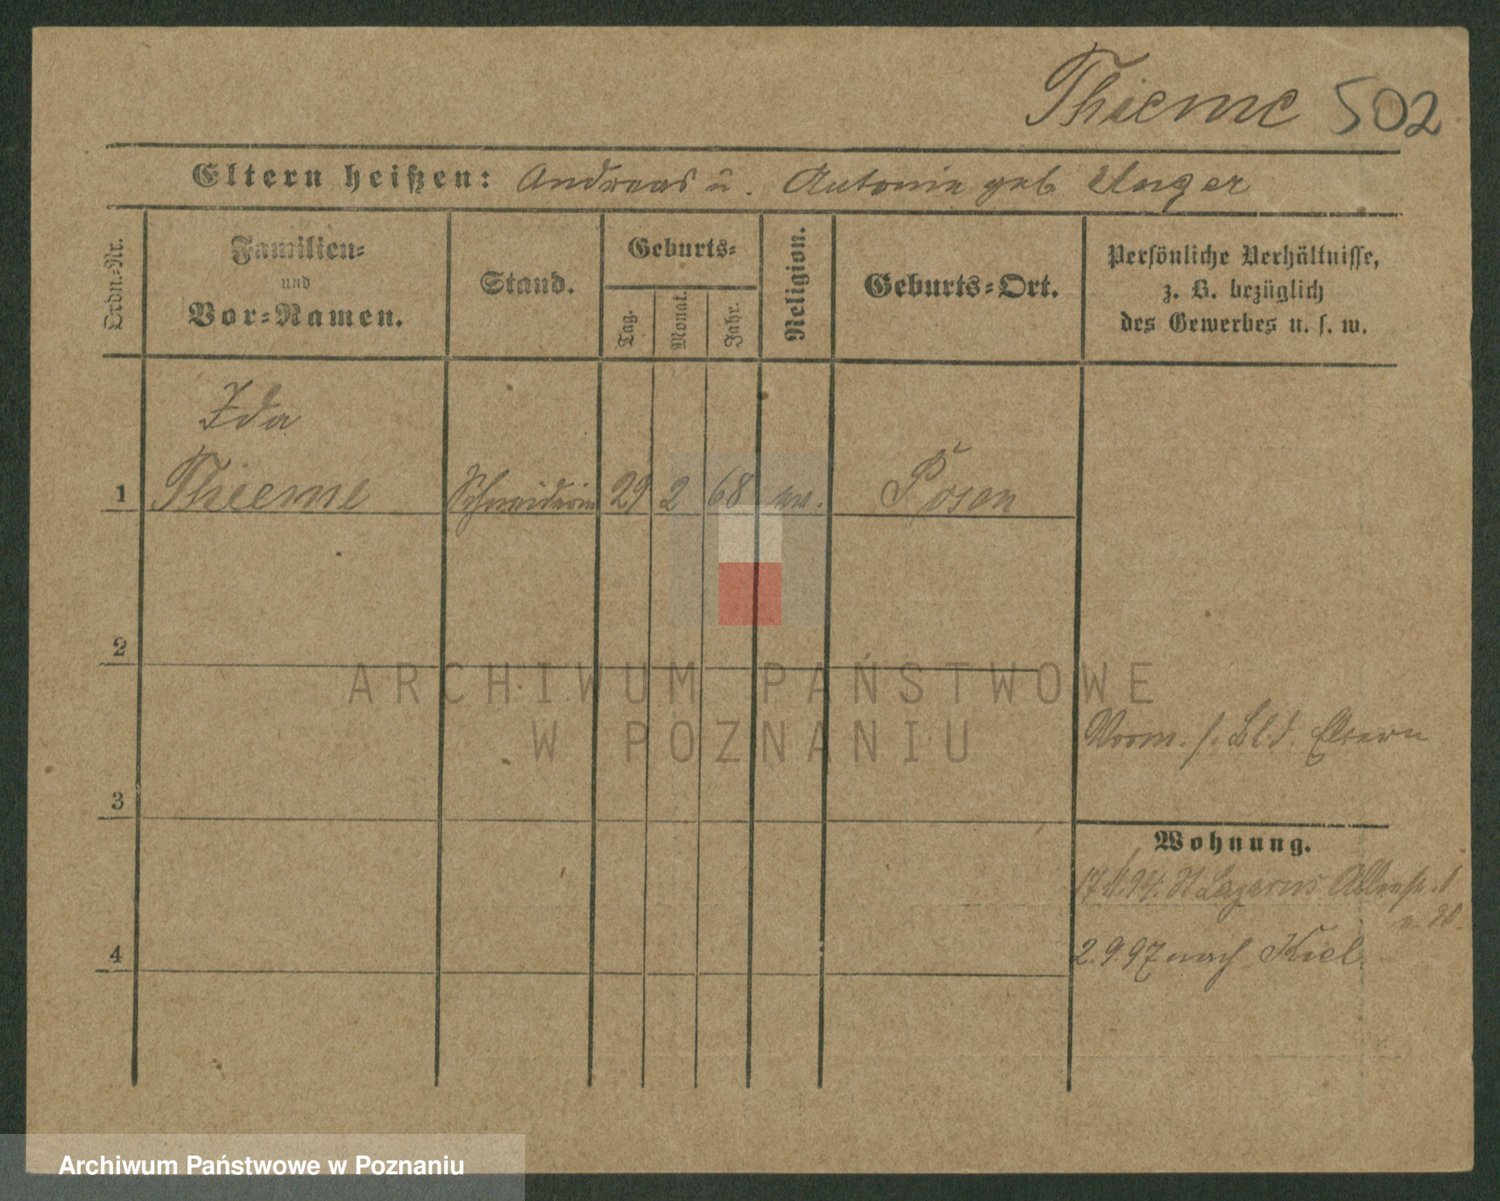 Thieme 502
Eltern heißen: Andreas u. Antonie geb Unger
Ordn.-Nr.
Familien-
und
Vor-Namen.
Stand.
Geburts-
Tag.
Monat.
Jahr.
Religion.
Geburts-Ort.
Persönliche Verhältnisse,
z. B. bezüglich
des Gewerbes u. s. w.
Ida
1 Thieme Schneiderin 29 2 68 ev. Posen
2
ARCHIWUM PAŃSTWOWE
W POZNANIU
Vorm. s. Eltern
3
Wohnung.
94. St Lazarus
2.9.97 nach Kiel
4
Archiwum Państwowe w Poznaniu